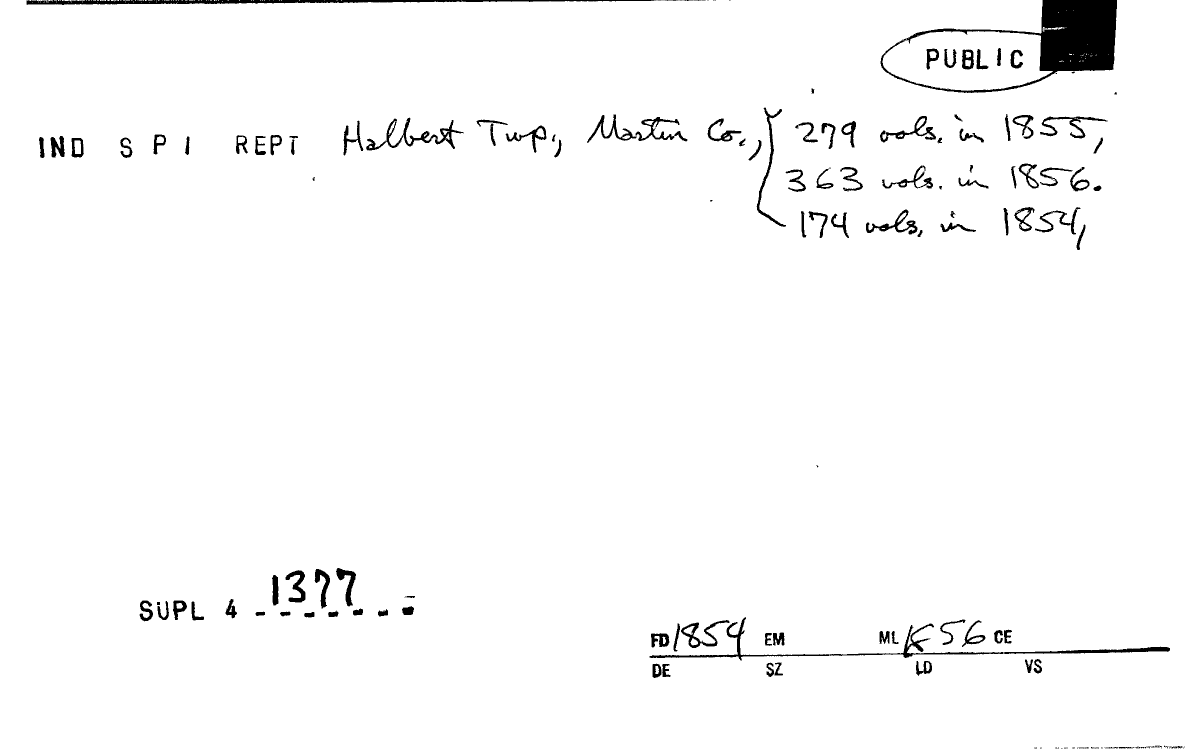 PUBLIC
IND S P I REPT Halbert Twp., Martin Co., 279 vols. in 1855,
363 vols. in 1856.
174 vols. in 1854,
SUPL 4 1377
FD 1854 EM ML 1856 CE
DE SZ LD VS